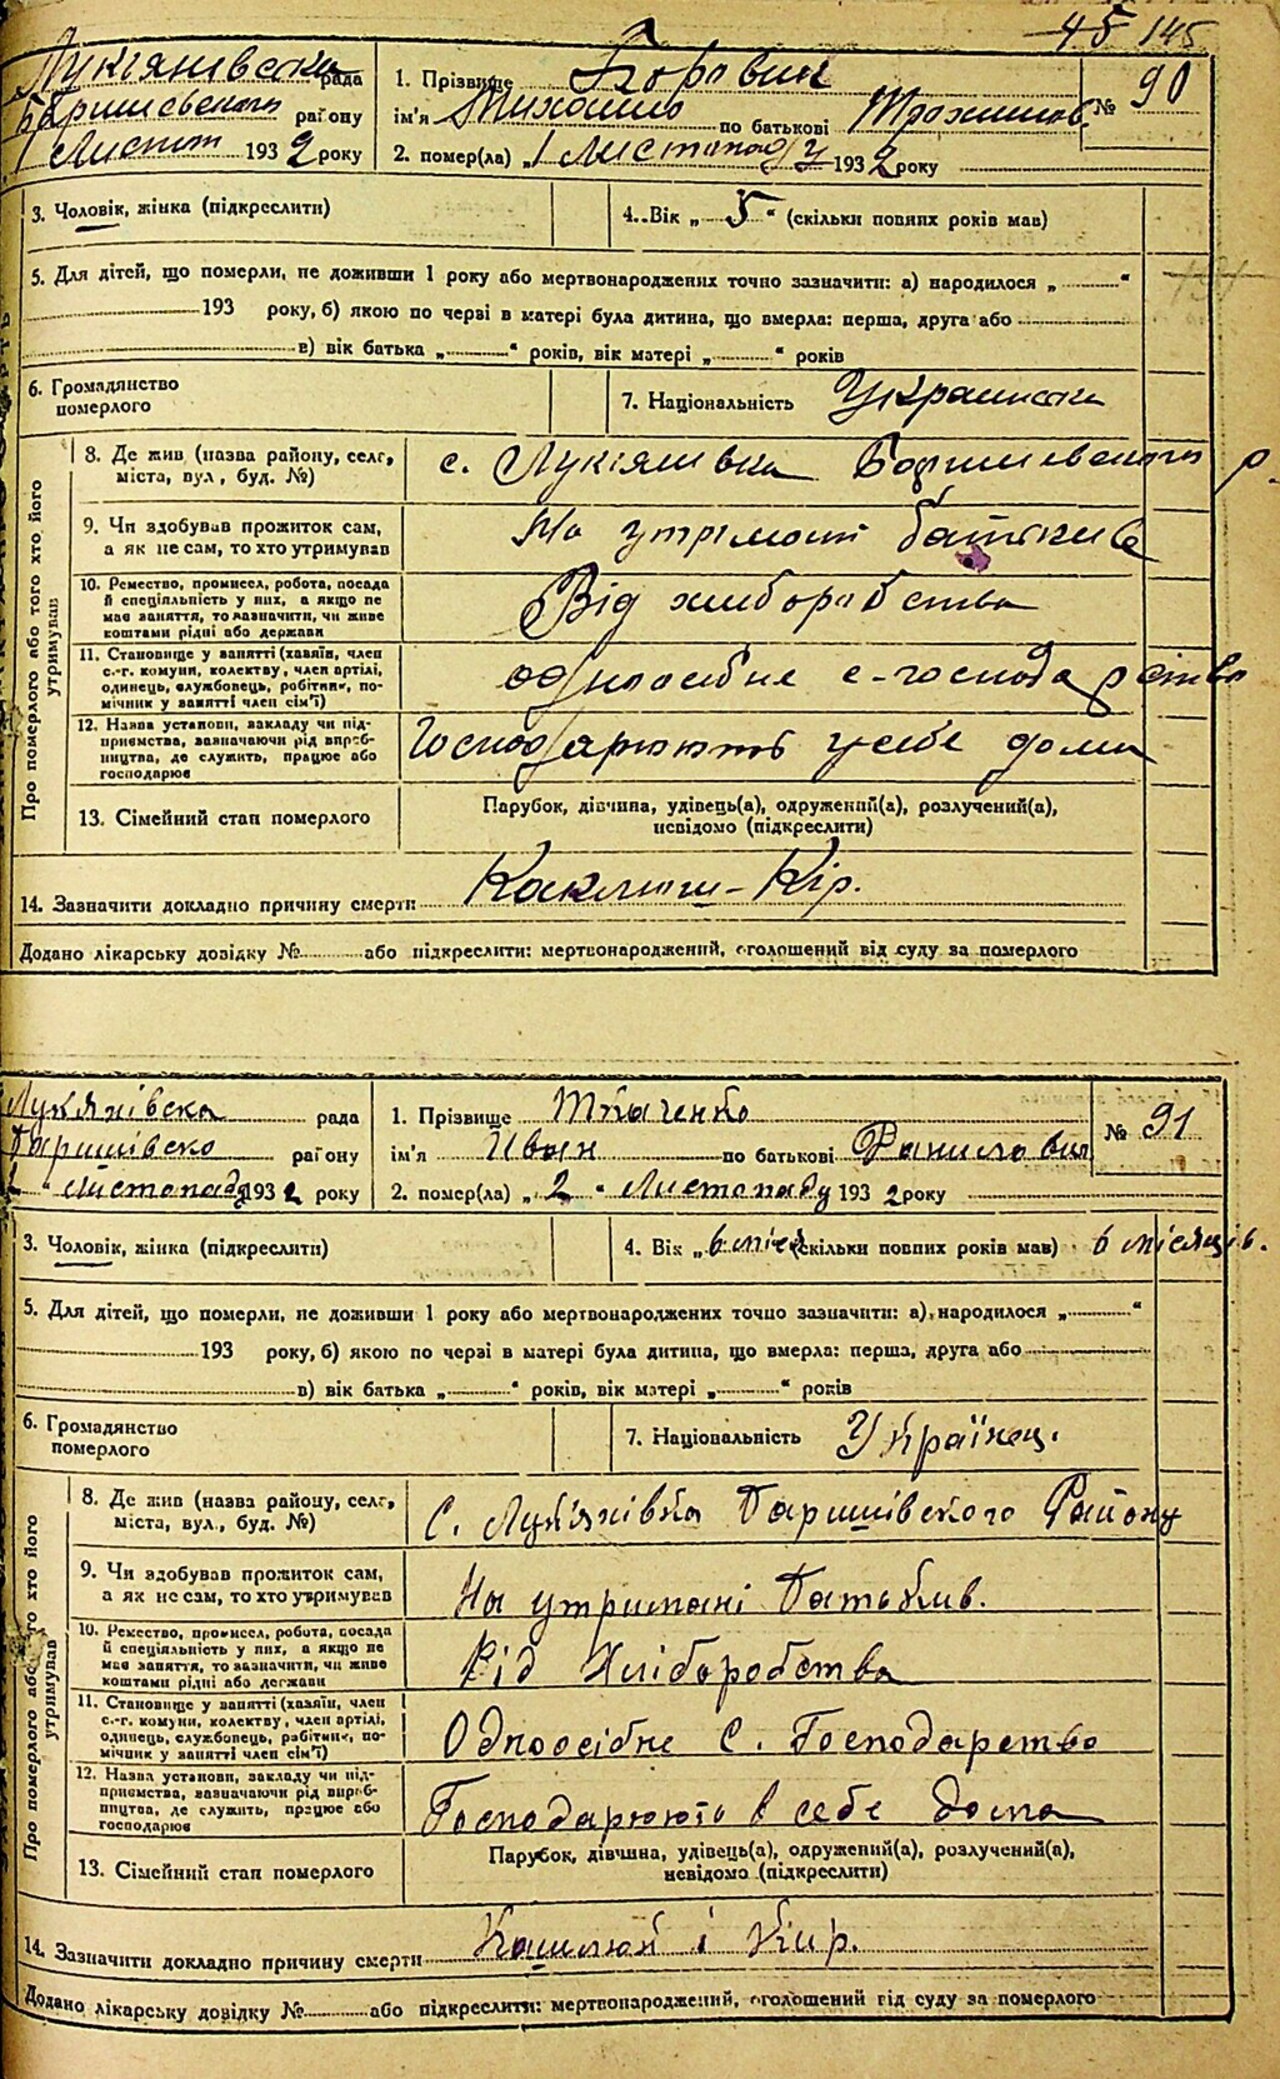 45 145
Лукіянівська рада
Баришевського району
1 Листоп 1932 року
1. Прізвище Боровик
ім'я Михайло по батькові Трохимов.
№ 90
2. помер(ла) „1 Листопаду 1932 року
3. Чоловік, жінка (підкреслити)
4. Вік „ 5 “ (скільки повних років мав)
5. Для дітей, що померли, не доживши 1 року або мертвонароджених точно зазначити: а) народилося „ “
193 року, б) якою по черзі в матері була дитина, що вмерла: перша, друга або
в) вік батька „ “ років, вік матері „ “ років
6. Громадянство
померлого
7. Національність Украинська
Про померлого або того хто його
утримував
8. Де жив (назва району, села,
міста, вул., буд. №)
с. Лукіянивка Баришевського р.
9. Чи здобував прожиток сам,
а як не сам, то хто утримував
На утрімані батьків
10. Ремество, промисел, робота, посада
й спеціяльність у них, а якщо не
має заняття, то зазначити, чи живе
коштами рідні або держави
Від хлиборобства
11. Становище у занятті (хазяїн, член
с.-г. комуни, колективу, член артілі,
одинець, службовець, робітник, по-
мічник у занятті член сім'ї)
одноосібне с-господарство
12. Назва установи, закладу чи під-
приємства, зазначаючи рід вироб-
ництва, де служить, працює або
господарює
Господарюють у себе дома
13. Сімейний стан померлого
Парубок, дівчина, удівець(а), одружений(а), розлучений(а),
невідомо (підкреслити)
14. Зазначити докладно причину смерти Каклюш-Кір.
Додано лікарську довідку № або підкреслити: мертвонароджений, оголошений від суду за померлого
Лук'янівска рада
Баришівско району
2 “ листопаду 1932 року
1. Прізвище Ткаченко
ім'я Иван по батькові Данилович
№ 91
2. помер(ла) „ 2 “ Листопаду 1932 року
3. Чоловік, жінка (підкреслити)
4. Вік „6 міся (скільки повних років мав) 6 місяців.
5. Для дітей, що померли, не доживши 1 року або мертвонароджених точно зазначити: а) народилося „ “
193 року, б) якою по черзі в матері була дитина, що вмерла: перша, друга або
в) вік батька „ “ років, вік матері „ “ років
6. Громадянство
померлого
7. Національність Українец.
Про померлого або того хто його
утримував
8. Де жив (назва району, села,
міста, вул., буд. №)
С. Лук'янівка Баришівского Району
9. Чи здобував прожиток сам,
а як не сам, то хто утримував
На утримані Батьків.
10. Ремество, промисел, робота, посада
й спеціяльність у них, а якщо не
має заняття, то зазначити, чи живе
коштами рідні або держави
Від Хліборобства
11. Становище у занятті (хазяїн, член
с.-г. комуни, колективу, член артілі,
одинець, службовець, робітник, по-
мічник у занятті член сім'ї)
Одноосібне С. Господарство
12. Назва установи, закладу чи під-
приємства, зазначаючи рід вироб-
ництва, де служить, працює або
господарює
Господарюють в себе дома
13. Сімейний стан померлого
Парубок, дівчина, удівець(а), одружений(а), розлучений(а),
невідомо (підкреслити)
14. Зазначити докладно причину смерти Кашлюк і Кір.
Додано лікарську довідку № або підкреслити: мертвонароджений, оголошений від суду за померлого